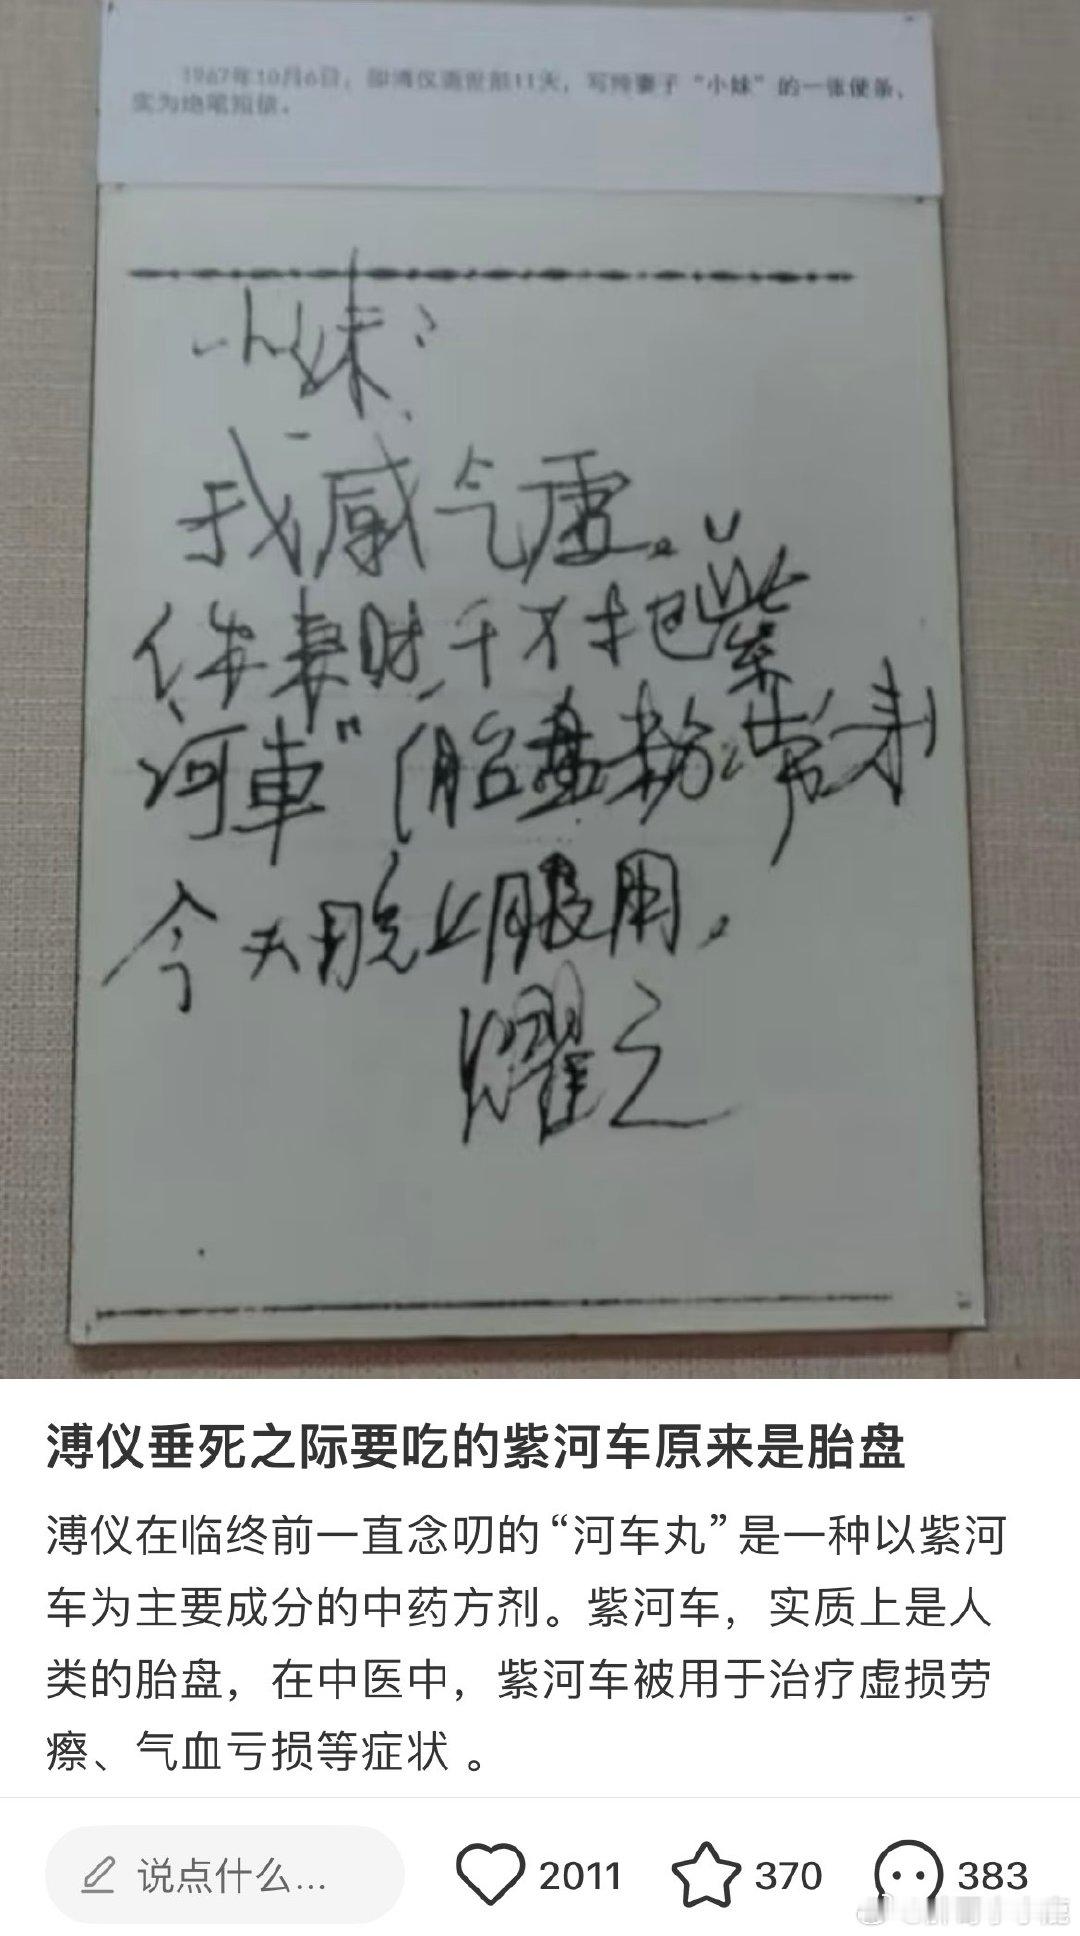 1967年10月6日，即溥仪逝世前11天，写给妻子“小妹”的一张便条，
实为绝笔短信。
小妹：
我感气虚。
你来时，千万把“紫
河車”（胎盘粉）带来，
今天晚上服用。
耀之
溥仪垂死之际要吃的紫河车原来是胎盘
溥仪在临终前一直念叨的“河车丸”是一种以紫河
车为主要成分的中药方剂。紫河车，实质上是人
类的胎盘，在中医中，紫河车被用于治疗虚损劳
瘵、气血亏损等症状 。
说点什么... 2011 370 383